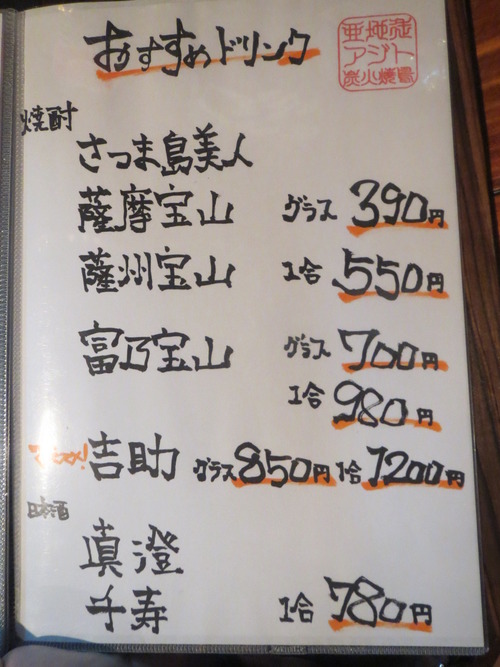 おすすめドリンク
亜地濃
アジト
炭火焼鳥
焼酎
さつま島美人
薩摩宝山 グラス 390円
薩州宝山 1合 550円
富乃宝山 グラス 700円
1合 980円
オススメ! 吉助 グラス 850円 1合 1200円
日本酒
真澄
千寿 1合 780円